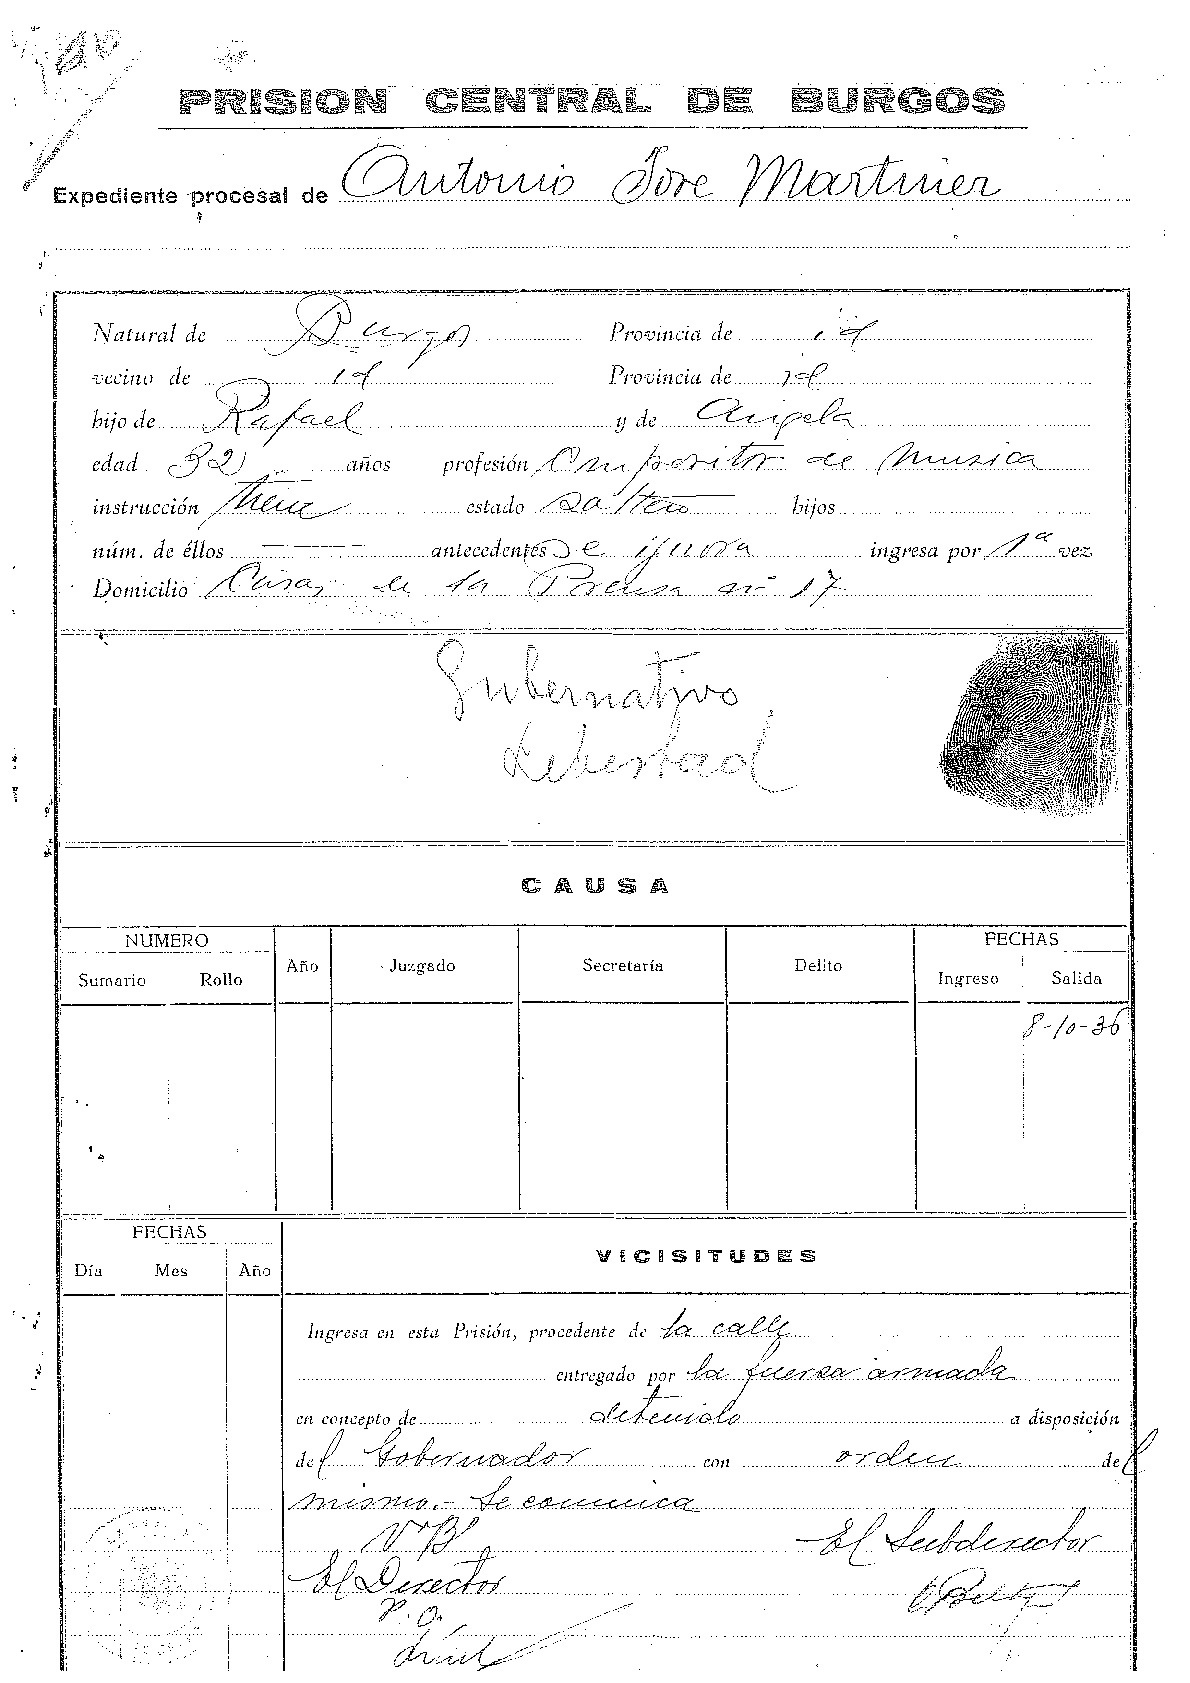 PRISION CENTRAL DE BURGOS
Expediente procesal de Antonio Jose Martinez
Natural de Burgos Provincia de id
vecino de id Provincia de id
hijo de Rafael y de Angela
edad 32 años profesión Compositor de musica
instrucción tiene estado soltero hijos
núm. de éllos — antecedentes Se ignora ingresa por 1ª vez
Domicilio Casas de la Prensa nº 17
Gubernativo
Libertad
CAUSA
NUMERO FECHAS
Sumario Rollo Año Juzgado Secretaría Delito Ingreso Salida
8-10-36
FECHAS
VICISITUDES
Día Mes Año
Ingresa en esta Prisión, procedente de la calle
entregado por la fuerza armada
en concepto de detenido a disposición
del Gobernador con orden del
mismo.- Se comunica
VºBº El Subdirector
El Director
P.O.